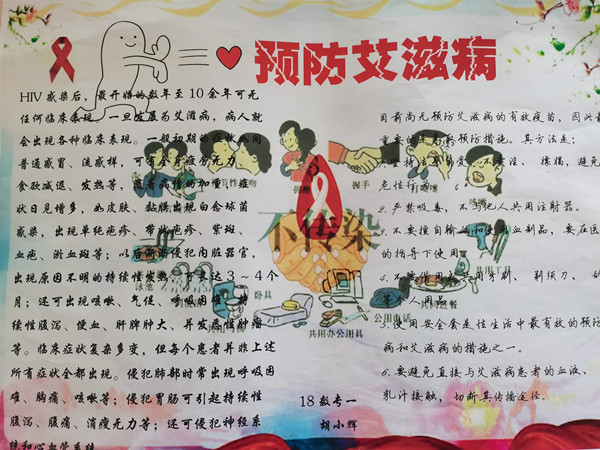 预防艾滋病
HIV 感染后，最开始的数年至 10 余年可无
任何临床表现。一旦发展为艾滋病，病人就
会出现各种临床表现。一般初期的症状如同
普通感冒、流感样，可有全身疲劳无力、
食欲减退、发热等，随着病情的加重，症
状日见增多，如皮肤、黏膜出现白念球菌
感染，出现单纯疱疹、带状疱疹、紫斑、
血疱、淤血斑等；以后渐渐侵犯内脏器官，
出现原因不明的持续性发热，可长达 3～4个
月；还可出现咳嗽、气促、呼吸困难、持
续性腹泻、便血、肝脾肿大、并发恶性肿瘤
等。临床症状复杂多变，但每个患者并非上述
所有症状全都出现。侵犯肺部时常出现呼吸困
难、胸痛、咳嗽等；侵犯胃肠可引起持续性
腹泻、腹痛、消瘦无力等；还可侵犯神经系
统和心血管系统
目前尚无预防艾滋病的有效疫苗，因此最
重要的是采取预防措施。其方法是：
危性行为
2.严禁吸毒，不与他人共用注射器。
3.不要擅自输血和使用血制品，要在医
的指导下使用
4.不要借用或共用牙刷、剃须刀、刮
等个人用品
5.使用安全套是性生活中最有效的预防
病和艾滋病的措施之一。
6.要避免直接与艾滋病患者的血液、
乳汁接触，切断其传播途径。
拥抱
握手
不传染
泳池
卧具
共用办公用具
公用电话
共同进餐
共用工具
18 数专一
胡小辉